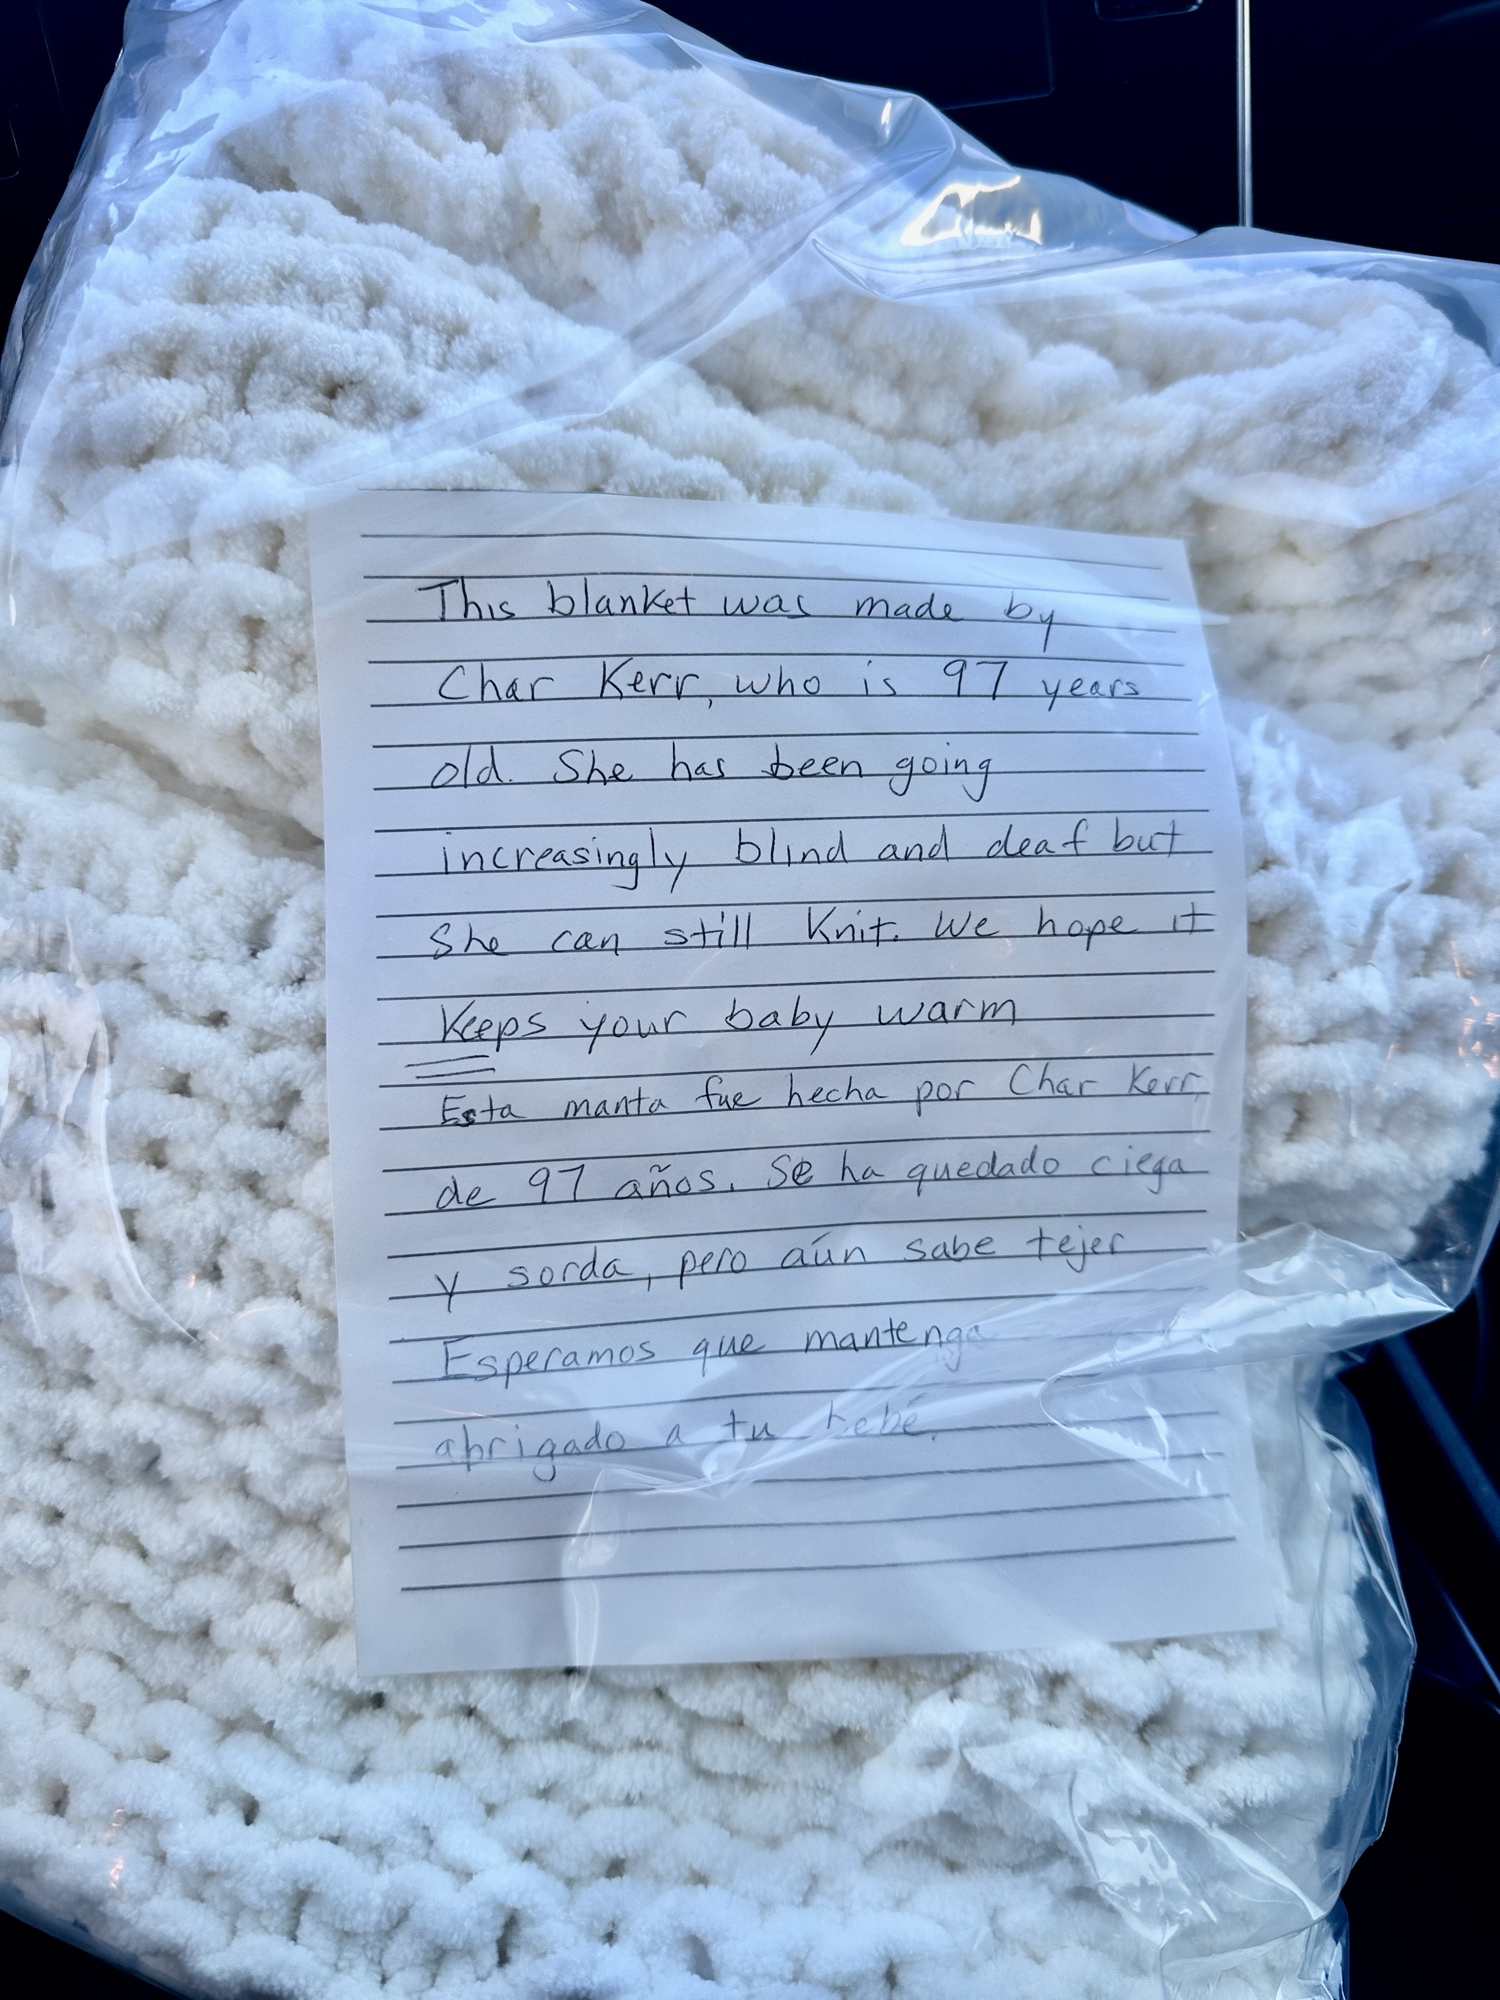 This blanket was made by
Char Kerr, who is 97 years
old. She has been going
increasingly blind and deaf but
She can still Knit. We hope it
Keeps your baby warm
Esta manta fue hecha por Char Kerr,
de 97 años. Se ha quedado ciega
y sorda, pero aún sabe tejer
Esperamos que mantenga
abrigado a tu bebé.